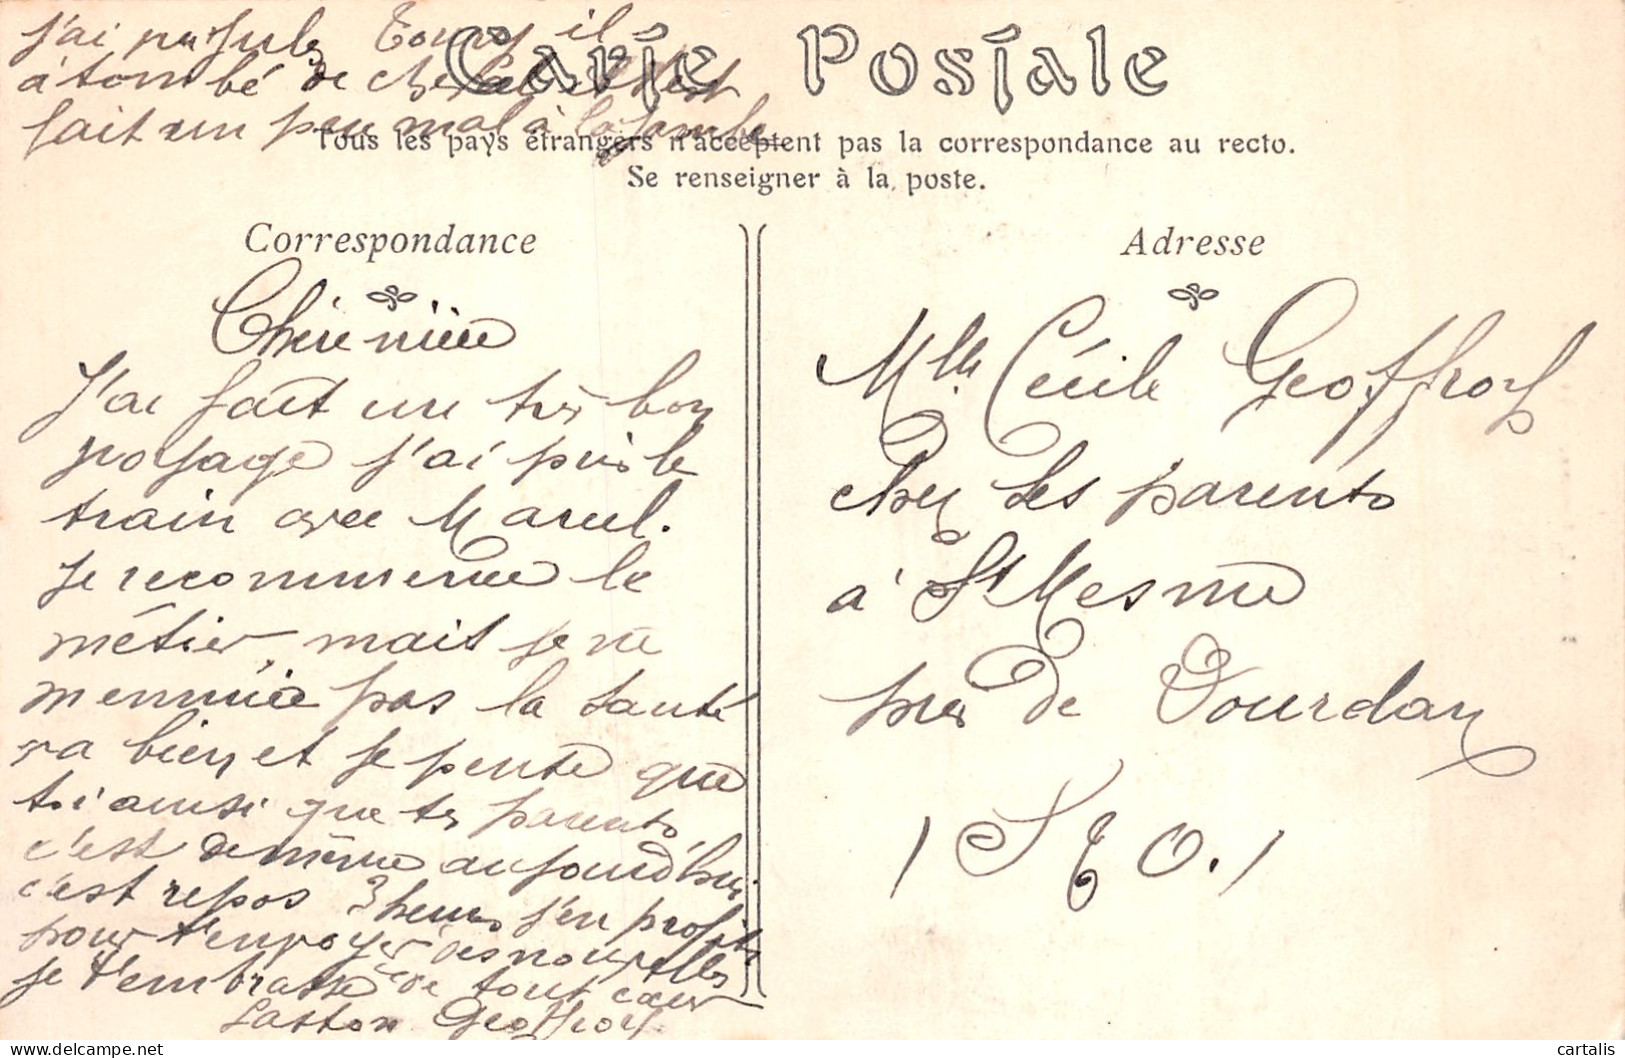 j'ai pu Jules Tourg il
à tombé de cheval il s'est
fait un peu mal à la jambe
Carte Postale
Tous les pays étrangers n'acceptent pas la correspondance au recto.
Se renseigner à la poste.
Correspondance
Chère nièce
J'ai fait un très bon
voyage j'ai pris le
train avec Marcel.
Je recommence le
métier, mait je ne
mennuie pas la santé
va bien et je pense que
toi ainsi que tes parents
c'est de même aujourd'hui
c'est repos 3 heures j'en profite
pour t'envoyer des nouvelles
je t'embrasse de tout cœur
Gaston Geoffroy
Adresse
Mlle Cécile Geoffroy
chez Ses parents
à St Mesme
près de Dourdan
(S & O.)
cartalis